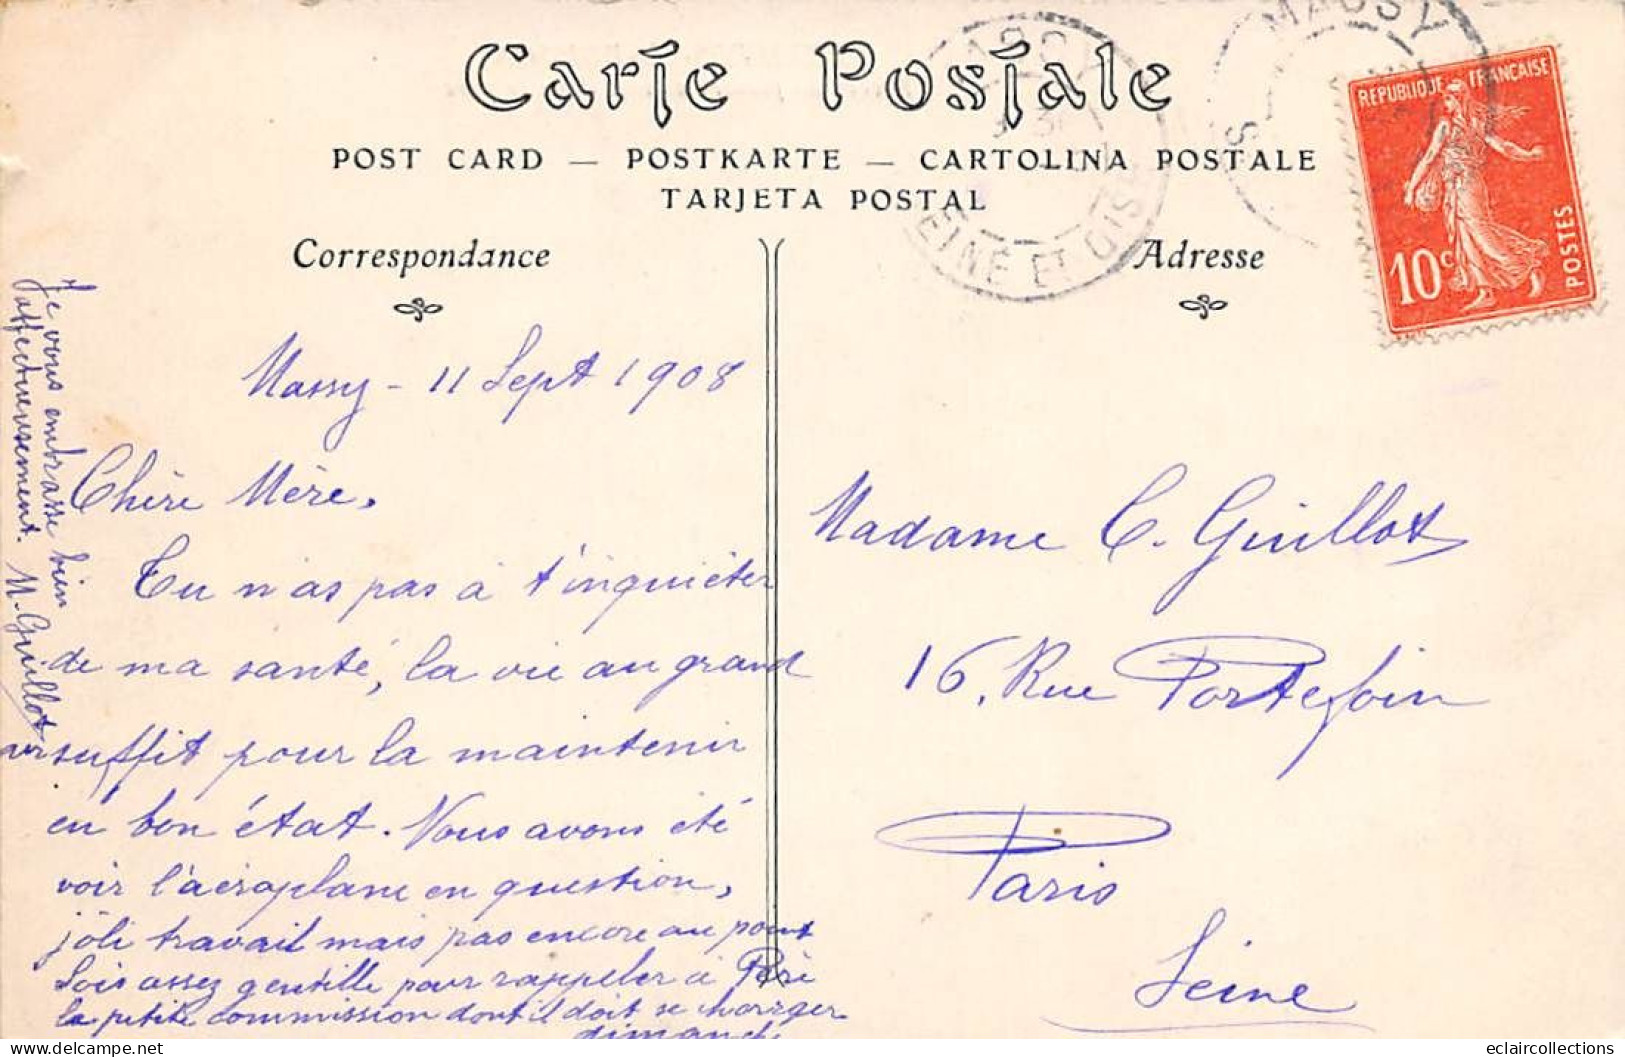 Carte Postale
POST CARD — POSTKARTE — CARTOLINA POSTALE
TARJETA POSTAL
Correspondance
Adresse
MASSY
SEINE ET OISE
REPUBLIQUE FRANCAISE
10c
POSTES
Massy - 11 Sept 1908
Chère Mère,
Tu n'as pas à t'inquiéter
de ma santé, la vie au grand
air suffit pour la maintenir
en bon état. Nous avons été
voir l'aéroplane en question,
joli travail mais pas encore au point
Sois assez gentille pour rappeler à Père
la petite commission dont il doit se charger
dimanche
Je vous embrasse bien
affectueusement. M. Guillot
Madame C. Guillot
16, Rue Portefoin
Paris
Seine
eclaircollections